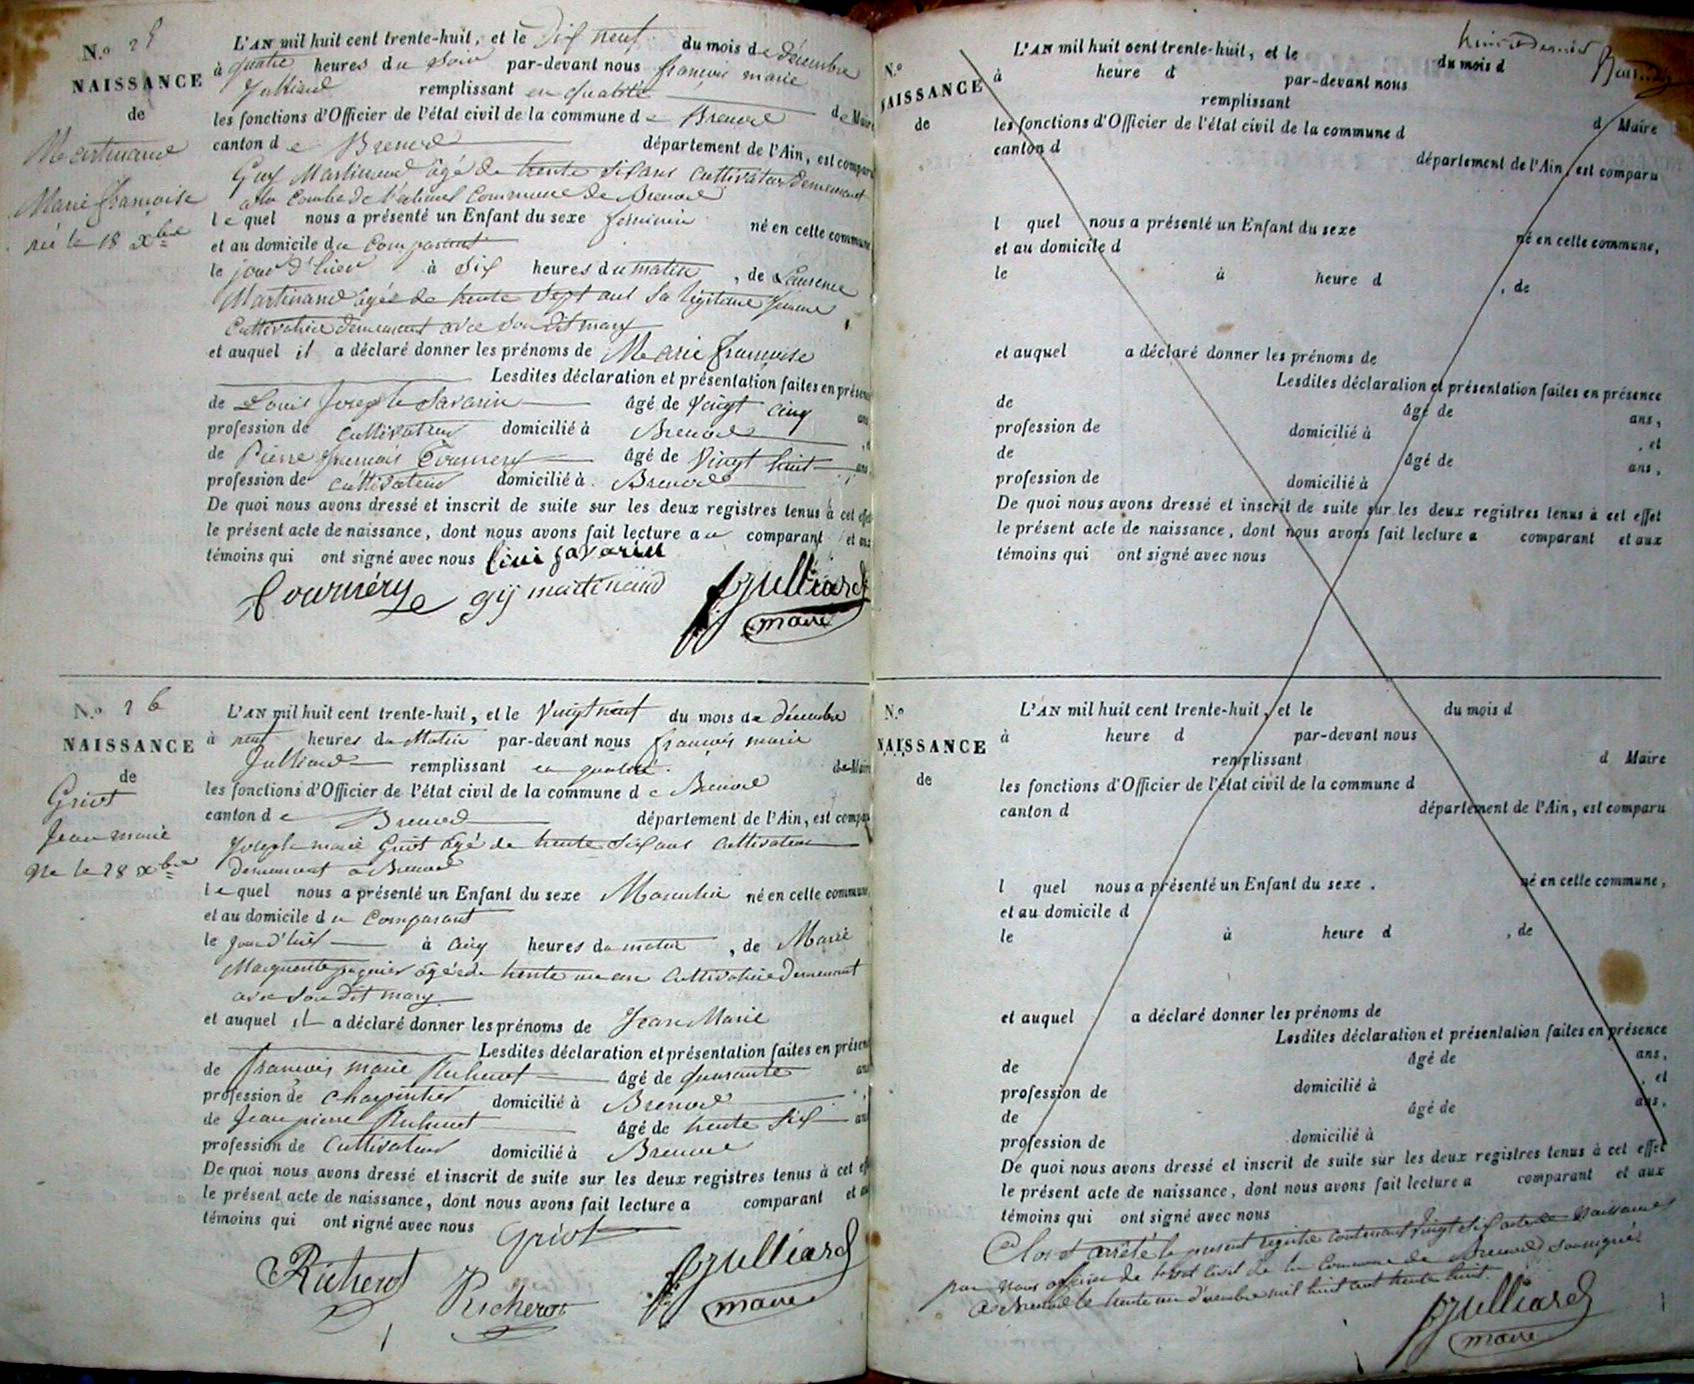 N.º 25
NAISSANCE
de
Martinand
Marie françoise
née le 18 Xbre
L'AN mil huit cent trente-huit, et le Dix neuf du mois de décembre
à quatre heures du Soir par-devant nous françois marie
Julliard remplissant en qualité de Maire
les fonctions d'Officier de l'état civil de la commune de Brenod
canton de Brenod département de l'Ain, est compar
Guy Martinand âgé de trente six ans cultivateur demeurant
a la Combe de commune de Brenod
lequel nous a présenté un Enfant du sexe feminin né en cette commune
et au domicile du Comparant
le jour d'hier à Six heures du matin, de Laurence
Martinand âgée de trente Sept ans Sa légitime femme
Cultivatrice demeurant avec son dit mary
et auquel il a déclaré donner les prénoms de Marie françoise
Lesdites déclaration et présentation faites en présence
de Louis Joseph Savarin âgé de Vingt cinq ans
profession de cultivateur domicilié à Brenod
de Pierre françois Tournery âgé de Vingt huit ans
profession de cultivateur domicilié à Brenod
De quoi nous avons dressé et inscrit de suite sur les deux registres tenus à cet effet
le présent acte de naissance, dont nous avons fait lecture au comparant et aux
témoins qui ont signé avec nous Loui Savarin
Tournéry guy martinand fJulliard
maire
N.º 26
NAISSANCE
de
Griot
Jean marie
Né le 28 Xbre
L'AN mil huit cent trente-huit, et le Vingt neuf du mois de décembre
à neuf heures du Matin par-devant nous françois marie
Julliard remplissant en qualité de Maire
les fonctions d'Officier de l'état civil de la commune de Brenod
canton de Brenod département de l'Ain, est compar
Joseph marie Griot âgé de trente Six ans Cultivateur
demeurant a Brenod
lequel nous a présenté un Enfant du sexe Masculin né en cette commune,
et au domicile du Comparant
le Jour d'hier à cinq heures du matin, de Marie
Marguerite âgée de trente un an Cultivatrice demeurant
avec Son dit mary
et auquel il a déclaré donner les prénoms de Jean Marie
Lesdites déclaration et présentation faites en présence
de françois marie Richerot âgé de quarante ans
profession de Charpentier domicilié à Brenod
de Jean pierre Richerot âgé de trente Six ans
profession de Cultivateur domicilié à Brenod
De quoi nous avons dressé et inscrit de suite sur les deux registres tenus à cet effet
le présent acte de naissance, dont nous avons fait lecture a comparant et aux
témoins qui ont signé avec nous Griot
Richerot Richerot fJulliard
maire
N.º
NAISSANCE
de
L'AN mil huit cent trente-huit, et le du mois d
à heure d par-devant nous
remplissant d Maire
les fonctions d'Officier de l'état civil de la commune d
canton d département de l'Ain, est comparu
l quel nous a présenté un Enfant du sexe né en cette commune,
et au domicile d
le à heure d , de
et auquel a déclaré donner les prénoms de
Lesdites déclaration et présentation faites en présence
de âgé de ans,
profession de domicilié à , et
de âgé de ans,
profession de domicilié à
De quoi nous avons dressé et inscrit de suite sur les deux registres tenus à cet effet
le présent acte de naissance, dont nous avons fait lecture a comparant et aux
témoins qui ont signé avec nous
N.º
NAISSANCE
de
L'AN mil huit cent trente-huit, et le du mois d
à heure d par-devant nous
remplissant d Maire
les fonctions d'Officier de l'état civil de la commune d
canton d département de l'Ain, est comparu
l quel nous a présenté un Enfant du sexe . né en cette commune,
et au domicile d
le à heure d , de
et auquel a déclaré donner les prénoms de
Lesdites déclaration et présentation faites en présence
de âgé de ans,
profession de domicilié à , et
de âgé de ans,
profession de domicilié à
De quoi nous avons dressé et inscrit de suite sur les deux registres tenus à cet effet
le présent acte de naissance, dont nous avons fait lecture a comparant et aux
témoins qui ont signé avec nous
Clos et arrêté le present registre contenant Vingt Six actes de Naissances
par nous officier de l'état Civil de la Commune de Brenod soussigné
a Brenod le trente un décembre mil huit cent trente huit.
fJulliard
maire